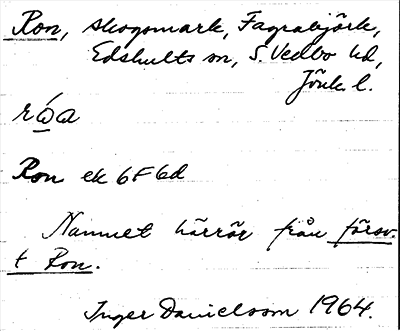 Ron, skogsmark, Fagrabjörk,
Edshults sn, S. Vedbo hd,
Jönk. l.
róa
Ron ek 6F6d
Namnet härrör från försv.
t Ron.
Inger Danielsson 1964.